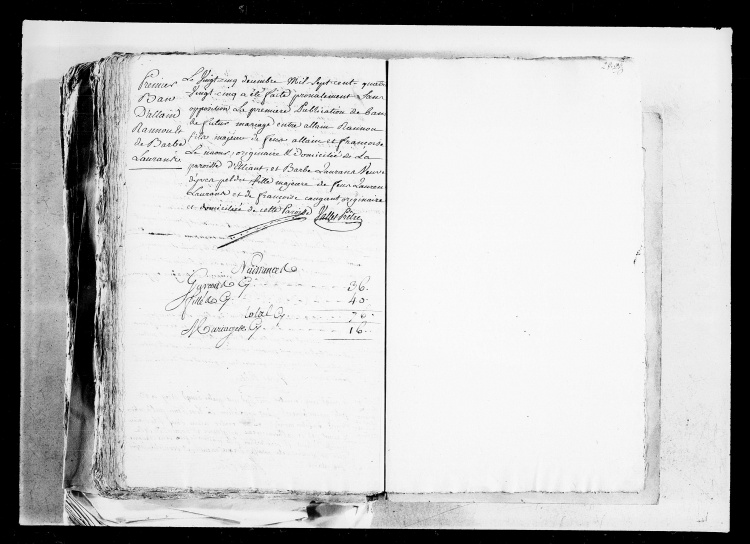 Premier
Ban
D'allain
Rannou &
de Barbe
Laurande
Le Vingt cinq decembre Mil Sept cent quatre
Vingt cinq a été faite pronalement Sans
opposition La premiere Publication de ban
de futur mariage entre allain Rannou
fils majeur de feus allain et françoise
Le originaire & Domicilié de La
paroisse d'Elliant, et Barbe Laurans Veuve
fille majeure de feus Lauren
Laurans et de françoise originaire
et domiciliée de cette Paroisse Prêtre
Naissances
Garcons Cy 36
filles Cy 40
total Cy
Mariages Cy 16